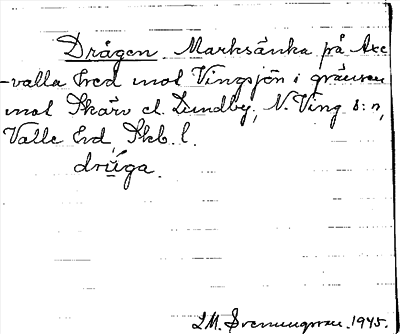 Drågen Marksänka på Axe
-valla hed mot Vingsjön i gränsen
mot Skärv o. Lundby, N. Ving s:n,
Valle hd, Skb. l.
drúga.
I.M. Svenungsson. 1945.